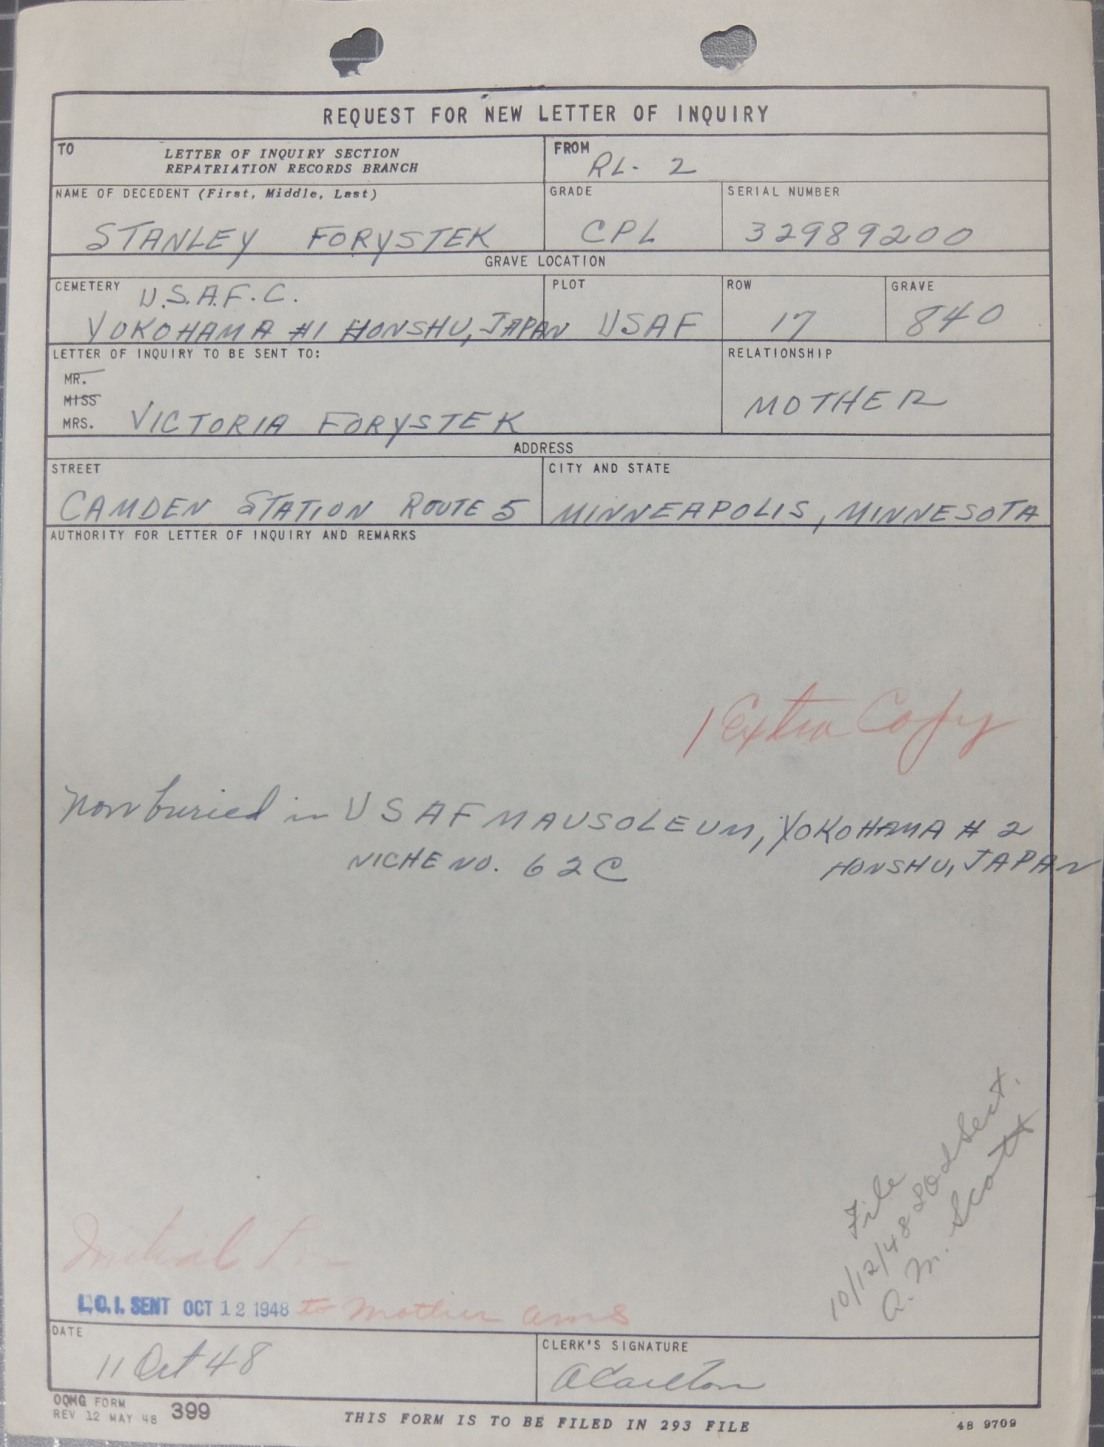 REQUEST FOR NEW LETTER OF INQUIRY
TO
LETTER OF INQUIRY SECTION
REPATRIATION RECORDS BRANCH
FROM
RL- 2
NAME OF DECEDENT (First, Middle, Last)
STANLEY FORYSTEK
GRADE
CPL
SERIAL NUMBER
32989200
GRAVE LOCATION
CEMETERY
U.S.A.F.C.
YOKOHAMA #1 HONSHU, JAPAN
PLOT
USAF
ROW
17
GRAVE
840
LETTER OF INQUIRY TO BE SENT TO:
MR.
MISS
MRS. VICTORIA FORYSTEK
RELATIONSHIP
MOTHER
ADDRESS
STREET
CAMDEN STATION ROUTE 5
CITY AND STATE
MINNEAPOLIS, MINNESOTA
AUTHORITY FOR LETTER OF INQUIRY AND REMARKS
1 Extra Copy
now buried in USAF MAUSOLEUM, YOKOHAMA # 2
NICHE NO. 62C HONSHU, JAPAN
File
10/12/48 Sect.
A. M. Scott
L.O.I. SENT OCT 12 1948 to mother ams
DATE
11 Oct 48
CLERK'S SIGNATURE
ACarlton
OQMG FORM
REV 12 MAY 48 399
THIS FORM IS TO BE FILED IN 293 FILE
48 9709